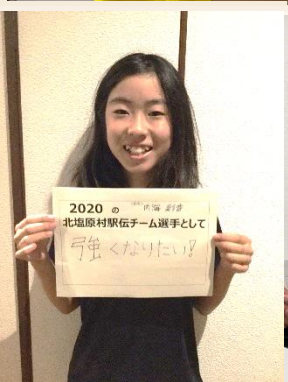 2020 の
北塩原村駅伝チーム選手として
強くなりたい!